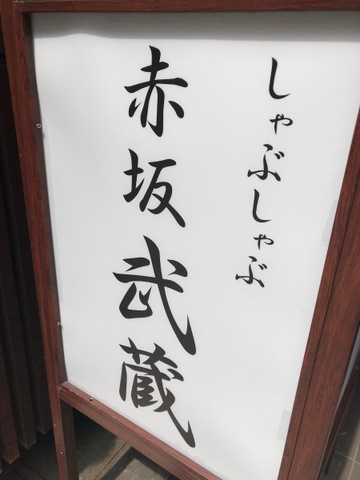 しゃぶしゃぶ
赤坂武蔵